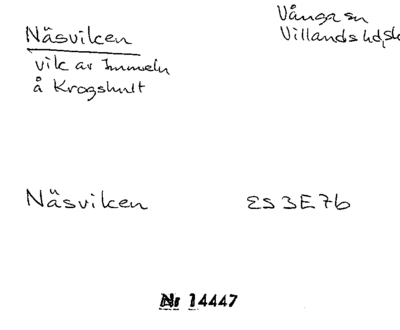 Näsviken
vik av Immeln
å Krogshult
Vånga sn
Villands hd, sk
Näsviken
ES 3E7b
Nr 14447